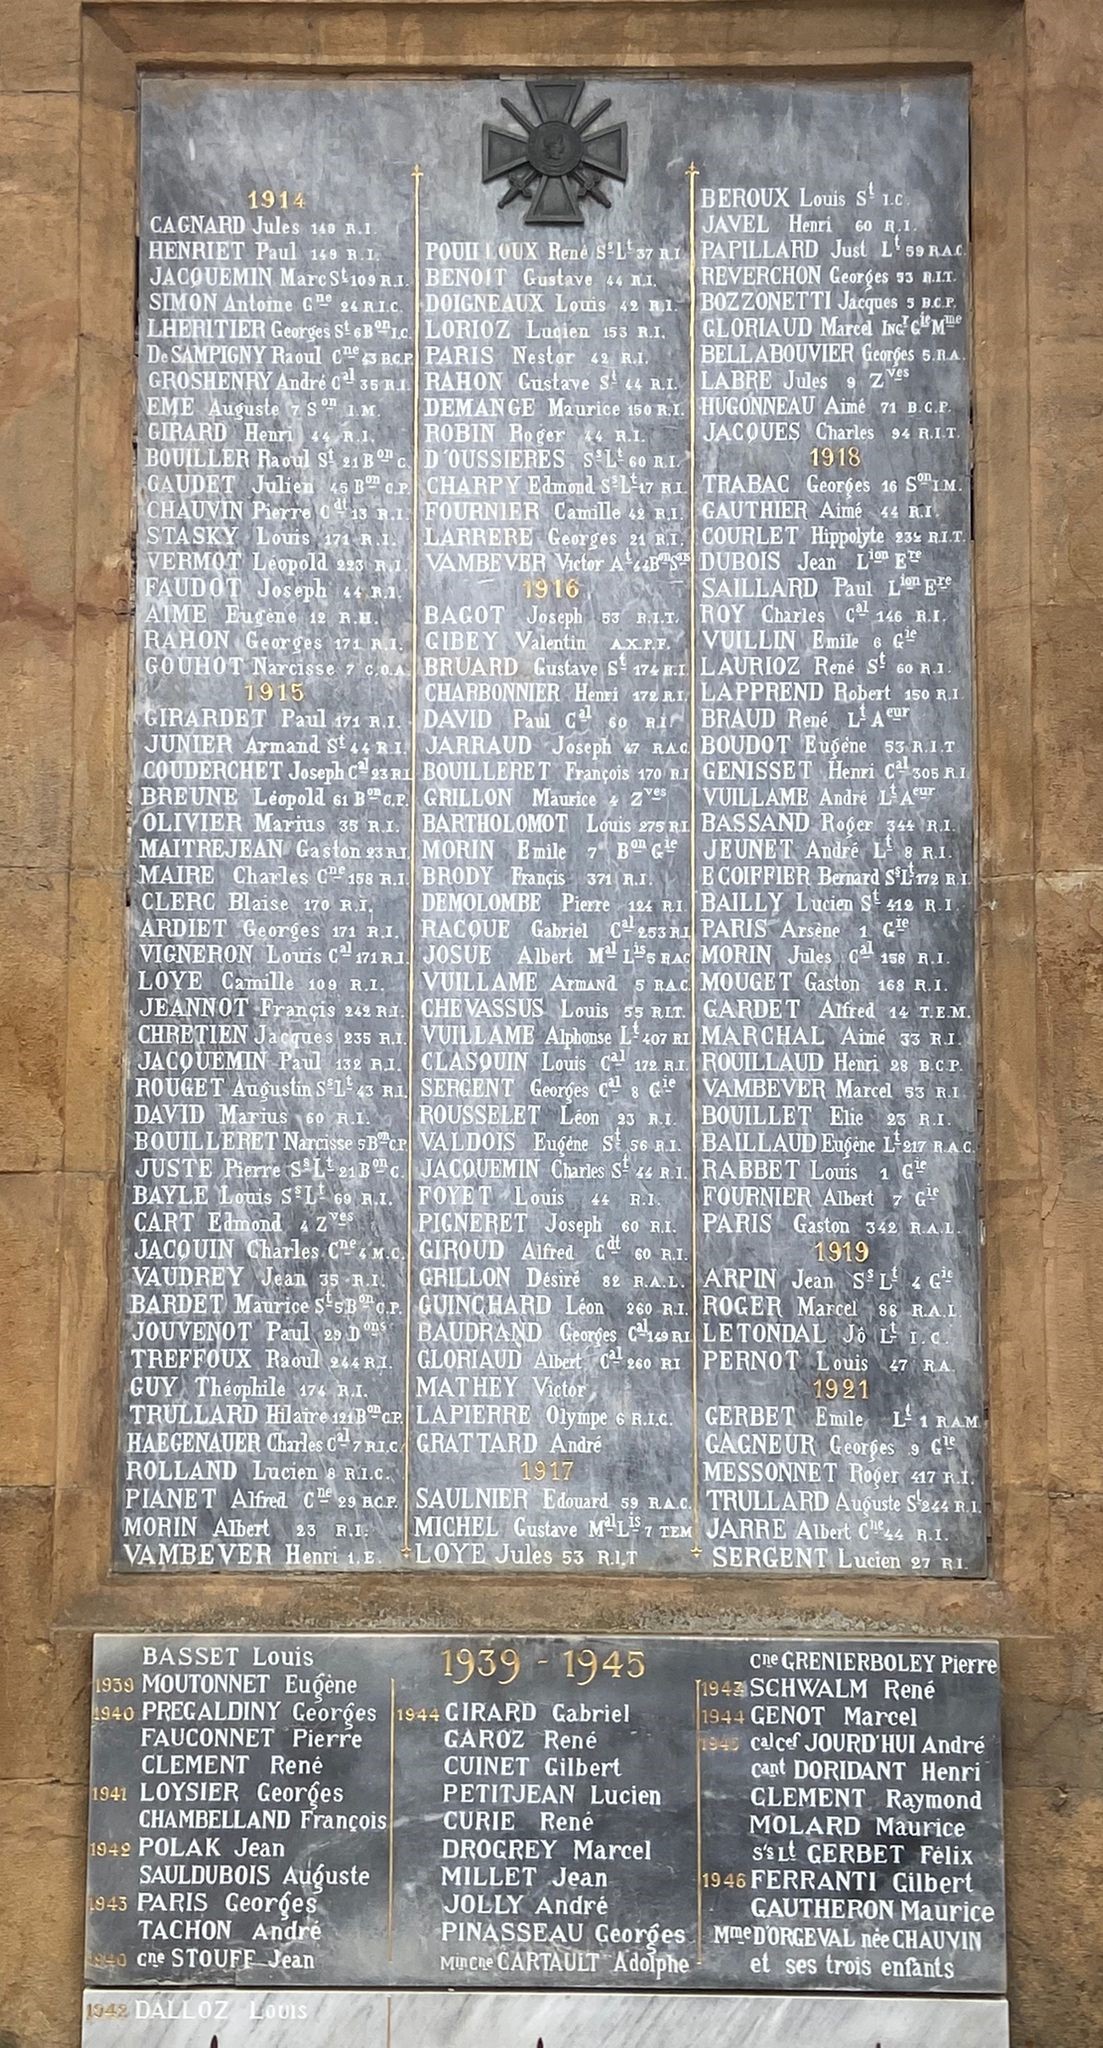 1914
CAGNARD Jules 149 R.I.
HENRIET Paul 149 R.I.
JACQUEMIN Marc St 109 R.I.
SIMON Antoine Cne 24 R.I.C.
LHERITIER Georges St 6 Bon I.C.
De SAMPIGNY Raoul Cne 43 B.C.P.
GROSHENRY André Cal 35 R.I.
EME Auguste 7 Son I.M.
GIRARD Henri 44 R.I.
BOUILLER Raoul St 21 Bon C.
GAUDET Julien 45 Bon C.P.
CHAUVIN Pierre Cdt 13 R.I.
STASKY Louis 171 R.I.
VERMOT Léopold 223 R.I.
FAUDOT Joseph 44 R.I.
AIME Eugène 12 R.H.
RAHON Georges 171 R.I.
GOUHOT Narcisse 7 C.O.A.
1915
GIRARDET Paul 171 R.I.
JUNIER Armand St 44 R.I.
COUDERCHET Joseph Cal 23 R.I.
BREUNE Léopold 61 Bon C.P.
OLIVIER Marius 35 R.I.
MAITREJEAN Gaston 23 R.I.
MAIRE Charles Cne 158 R.I.
CLERC Blaise 170 R.I.
ARDIET Georges 171 R.I.
VIGNERON Louis Cal 171 R.I.
LOYE Camille 109 R.I.
JEANNOT Françis 242 R.I.
CHRETIEN Jacques 235 R.I.
JACQUEMIN Paul 132 R.I.
ROUGET Augustin Ss Lt 43 R.I.
DAVID Marius 60 R.I.
BOUILLERET Narcisse 5 Bon C.P.
JUSTE Pierre Ss Lt 21 Bon C.
BAYLE Louis Ss Lt 69 R.I.
CART Edmond 4 Zves
JACQUIN Charles Cne 4 M.C.
VAUDREY Jean 35 R.I.
BARDET Maurice St 5 Bon C.P.
JOUVENOT Paul 29 Dons
TREFFOUX Raoul 244 R.I.
GUY Théophile 174 R.I.
TRULLARD Hilaire 121 Bon C.P.
HAEGENAUER Charles Cal 7 R.I.C.
ROLLAND Lucien 8 R.I.C.
PIANET Alfred Cne 29 B.C.P.
MORIN Albert 23 R.I.
VAMBEVER Henri 1.E.
POUILLOUX René Ss Lt 37 R.I.
BENOIT Gustave 44 R.I.
DOIGNEAUX Louis 42 R.I.
LORIOZ Lucien 153 R.I.
PARIS Nestor 42 R.I.
RAHON Gustave St 44 R.I.
DEMANGE Maurice 150 R.I.
ROBIN Roger 44 R.I.
D'OUSSIERES Ss Lt 60 R.I.
CHARPY Edmond Ss Lt 17 R.I.
FOURNIER Camille 42 R.I.
LARRERE Georges 21 R.I.
VAMBEVER Victor At 44 Bon Sars
1916
BAGOT Joseph 53 R.I.T.
GIBEY Valentin A.X.P.F.
BRUARD Gustave St 174 R.I.
CHARBONNIER Henri 172 R.I.
DAVID Paul Cal 60 R.I
JARRAUD Joseph 47 R.A.C.
BOUILLERET François 170 R.I
GRILLON Maurice 4 Zves
BARTHOLOMOT Louis 275 R.I.
MORIN Emile 7 Bon Gie
BRODY Françis 371 R.I.
DEMOLOMBE Pierre 124 R.I.
RACQUE Gabriel Cal 253 R.I.
JOSUE Albert Mal Lis 5 RAC
VUILLAME Armand 5 R.A.C.
CHEVASSUS Louis 55 R.I.T.
VUILLAME Alphonse Lt 407 R.I
CLASQUIN Louis Cal 172 R.I.
SERGENT Georges Cal 8 Gie
ROUSSELET Léon 23 R.I.
VALDOIS Eugène St 56 R.I.
JACQUEMIN Charles St 44 R.I.
FOYET Louis 44 R.I.
PIGNERET Joseph 60 R.I.
GIROUD Alfred Cdt 60 R.I.
GRILLON Désiré 82 R.A.L.
GUINCHARD Léon 260 R.I.
BAUDRAND Georges Cal 149 R.I
GLORIAUD Albert Cal 260 R.I
MATHEY Victor
LAPIERRE Olympe 6 R.I.C.
GRATTARD André
1917
SAULNIER Edouard 59 R.A.C.
MICHEL Gustave Mal Lis 7 TEM
LOYE Jules 53 R.I.T
BEROUX Louis St I.C.
JAVEL Henri 60 R.I.
PAPILLARD Just Lt 59 R.A.C.
REVERCHON Georges 53 R.I.T.
BOZZONETTI Jacques 5 B.C.P.
GLORIAUD Marcel Ingr Gie Mme
BELLABOUVIER Georges 5 R.A.
LABRE Jules 9 Zves
HUGONNEAU Aimé 71 B.C.P.
JACQUES Charles 94 R.I.T.
1918
TRABAC Georges 16 Son I.M.
GAUTHIER Aimé 44 R.I.
COURLET Hippolyte 234 R.I.T.
DUBOIS Jean Lion Ere
SAILLARD Paul Lion Ere
ROY Charles Cal 146 R.I.
VUILLIN Emile 6 Gie
LAURIOZ René St 60 R.I.
LAPPREND Robert 150 R.I.
BRAUD René Lt Aeur
BOUDOT Eugène 53 R.I.T
GENISSET Henri Cal 305 R.I.
VUILLAME André Lt Aeur
BASSAND Roger 344 R.I.
JEUNET André Lt 8 R.I.
ECOIFFIER Bernard Ss Lt 172 R.I
BAILLY Lucien St 412 R.I.
PARIS Arsène 1 Gie
MORIN Jules Cal 158 R.I.
MOUGET Gaston 168 R.I.
GARDET Alfred 14 T.E.M.
MARCHAL Aimé 33 R.I.
ROUILLAUD Henri 28 B.C.P.
VAMBEVER Marcel 53 R.I.
BOUILLET Elie 23 R.I.
BAILLAUD Eugène Lt 217 R.A.C.
RABBET Louis 1 Gie
FOURNIER Albert 7 Gie
PARIS Gaston 342 R.A.L.
1919
ARPIN Jean Ss Lt 4 Gie
ROGER Marcel 88 R.A.L
LETONDAL Jô Lt I.C.
PERNOT Louis 47 R.A.
1921
GERBET Emile Lt 1 R.A.M.
GAGNEUR Georges 9 Gie
MESSONNET Roger 417 R.I.
TRULLARD Auguste St 244 R.I.
JARRE Albert Cne 44 R.I.
SERGENT Lucien 27 R.I.
1939 - 1945
BASSET Louis
1939 MOUTONNET Eugène
1940 PREGALDINY Georges
FAUCONNET Pierre
CLEMENT René
1941 LOYSIER Georges
CHAMBELLAND François
1942 POLAK Jean
SAULDUBOIS Auguste
1943 PARIS Georges
TACHON André
1940 cne STOUFF Jean
1944 GIRARD Gabriel
GAROZ René
CUINET Gilbert
PETITJEAN Lucien
CURIE René
DROGREY Marcel
MILLET Jean
JOLLY André
PINASSEAU Georges
Min cne CARTAULT Adolphe
cne GRENIERBOLEY Pierre
1943 SCHWALM René
1944 GENOT Marcel
1945 cal cef JOURD'HUI André
cant DORIDANT Henri
CLEMENT Raymond
MOLARD Maurice
s/s Lt GERBET Félix
1946 FERRANTI Gilbert
GAUTHERON Maurice
Mme D'ORGEVAL née CHAUVIN
et ses trois enfants
1942 DALLOZ Louis